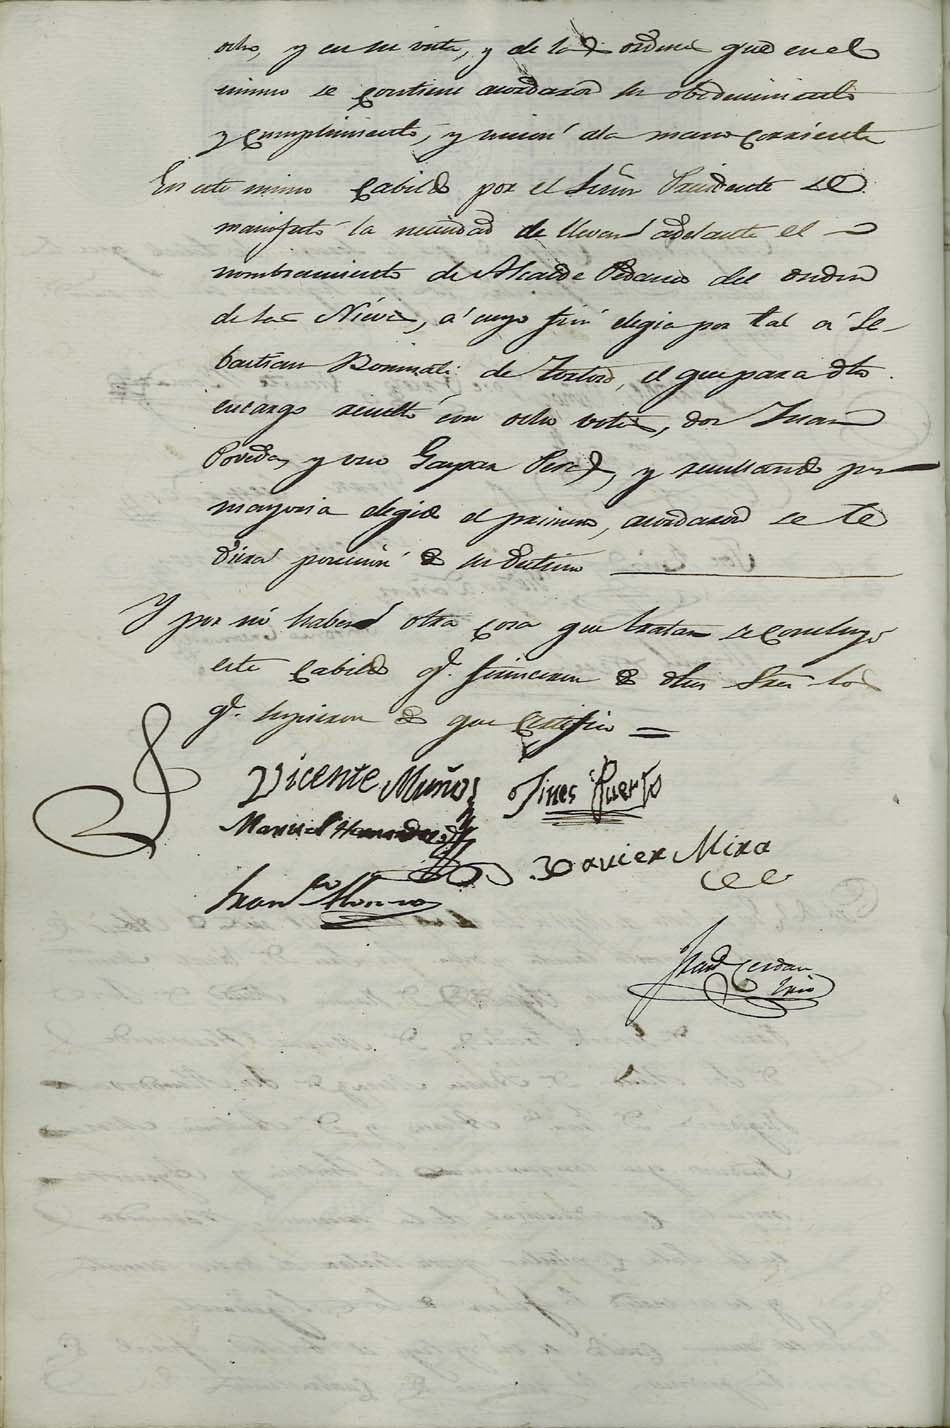 ocho, y en su vista, y de las ordenes que en el
mismo se contiene acordaron su obedecimiento
y cumplimiento, y union al a mano corriente
En este mismo Cabildo por el Señor Presidente se
manifestó la necesidad de llevar adelante el
nombramiento de Alcalde Pedaneo del orden
de las Nieves, a cuyo fin elegia por tal á Se-
bastian Bonmati de Tortora, el que para dho
encargo resultó con ocho votos, dos Juan
Poveda, y uno Gaspar Perez, y resultando por
mayoria elegido el primero, acordaron se le
diera posecion de su destino
Y por no haber otra cosa que tratar se concluyó
este Cabildo q.e firmaron de dhos Sres los
q.e supieron de que Certifico =
Vicente Muñoz Gines Puerto
Manuel Hernandez
Xavier Mira
Fran.co Alonso
Juan Cerdan
Srio